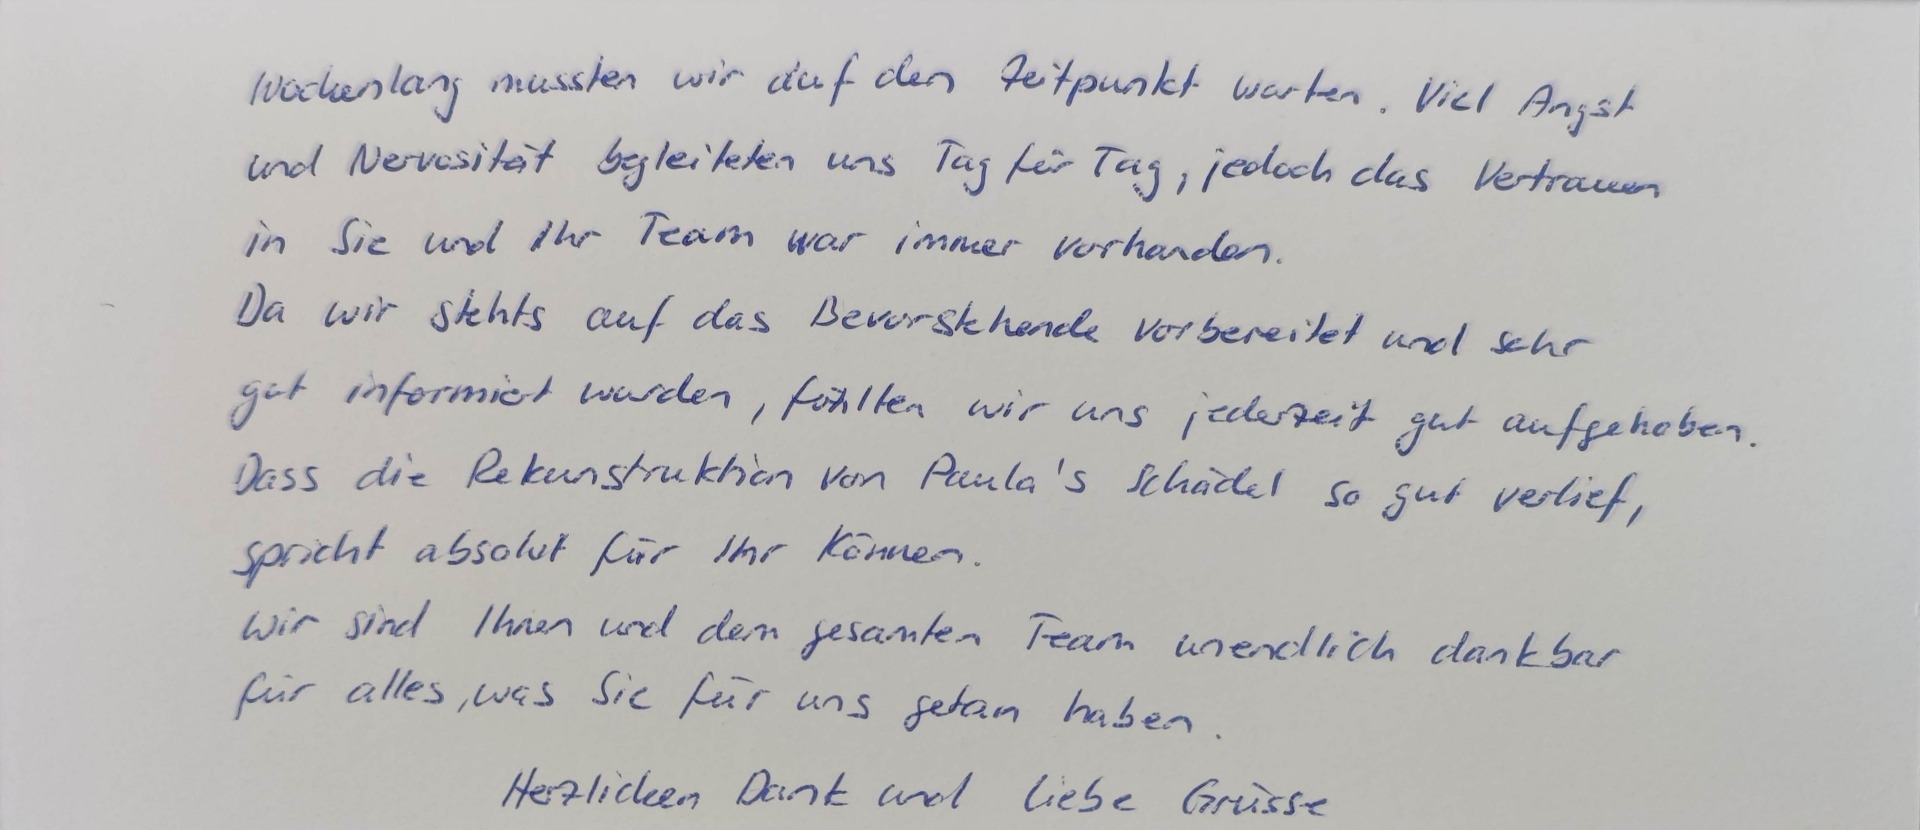 Wochenlang mussten wir auf den Zeitpunkt warten. Viel Angst
und Nervosität begleiteten uns Tag für Tag, jedoch das Vertrauen
in Sie und Ihr Team war immer vorhanden.
Da wir stehts auf das Bevorstehende vorbereitet und sehr
gut informiert wurden, fühlten wir uns jederzeit gut aufgehoben.
Dass die Rekonstruktion von Paula's Schädel so gut verlief,
spricht absolut für Ihr Können.
Wir sind Ihnen und dem gesamten Team unendlich dankbar
für alles, was Sie für uns getan haben.
Herzlichen Dank und liebe Grüsse